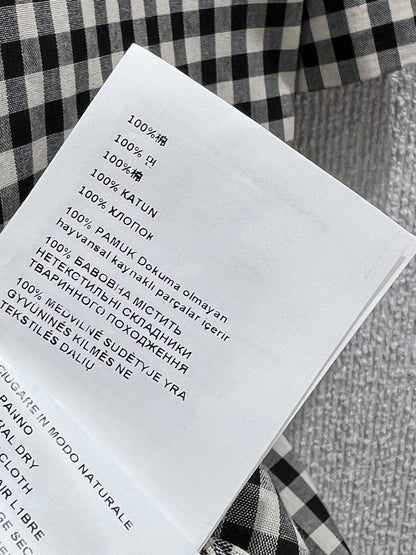 100%棉
100% 면
100%棉
100% KATUN
100% ХЛОПОК
100% PAMUK Dokuma olmayan
hayvansal kaynaklı parçalar içerir
100% БАВОВНА МІСТИТЬ
НЕТЕКСТИЛЬНІ СКЛАДНИКИ
ТВАРИННОГО ПОХОДЖЕННЯ
100% MEDVILNĖ SUDĖTYJE YRA
GYVŪNINĖS KILMĖS NE
TEKSTILĖS DALIŲ
CIUGARE IN MODO NATURALE
PANNO
RAL DRY
CLOTH
AIR L1BRE
GE SEC